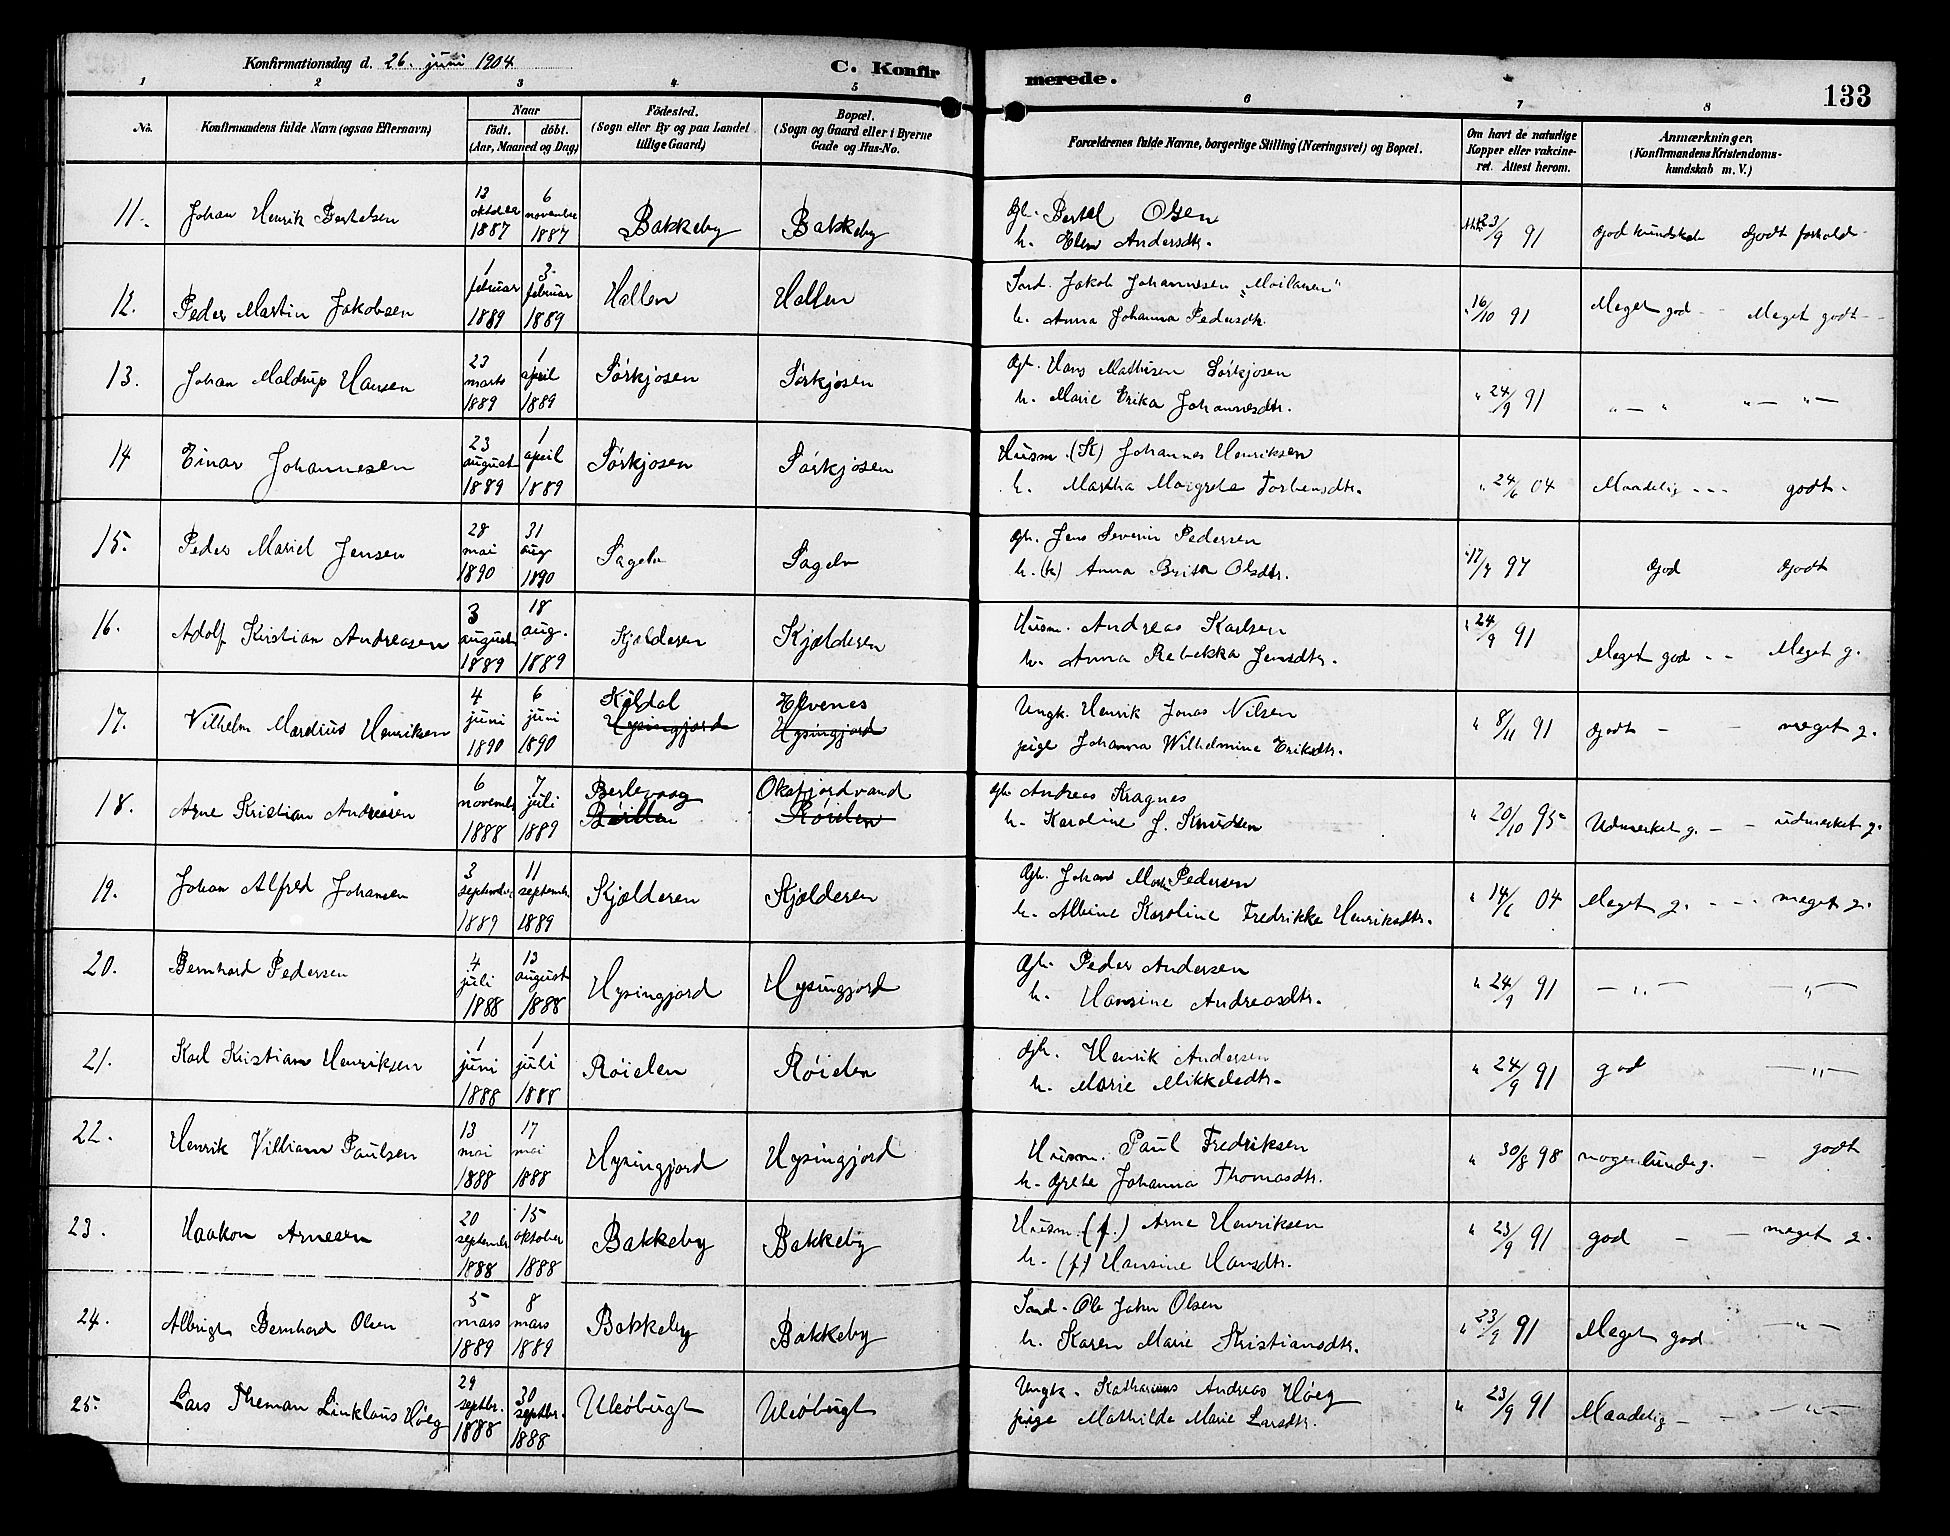 Konfirmationsdag d. 26. juni 1904
C. Konfirmerede.
133
1 2 3 4 5 6 7 8
No.
Konfirmandens fulde Navn (ogsaa Efternavn)
Naar
födt. döbt.
(Aar, Maaned og Dag)
Födested.
(Sogn eller By og paa Landet
tillige Gaard)
Bopæl.
(Sogn og Gaard eller i Byerne
Gade og Hus-No.
Forældrenes fulde Navne, borgerlige Stilling (Næringsvei) og Bopæl.
Om havt de naturlige
Kopper eller vakcine-
ret. Attest herom.
Anmærkninger.
(Konfirmandens Kristendoms-
kundskab m. V.)
11. Johan Henrik Bertelsen 13 oktober 1887 6 november 1887 Bakkeby Bakkeby
Gbr. Bertel Olsen
h. Elen Andersdtr.
23/9 91 God kundskab Godt forhold
12. Peder Martin Jakobsen 1 februar 1889 3 februar 1889 Hallen Hallen
Ind. Jakob Johannesen
h. Anna Johanna Pedersdtr.
" 16/10 91 Meget god - - Meget godt -
13. Johan Maldrup Hansen 23 marts 1889 1 april 1889 Sørkjosen Sørkjosen
Gbr. Hans Mathisen Sørkjosen
h. Marie Erika Johannesdtr.
" 24/9 91 " — " " — " —
14 Einar Johannesen 23 august 1889 1 april 1889 Sørkjosen Sørkjosen
Husm. (K) Johannes Henriksen
h. Martha Margrete Torbensdtr.
" 24/6 04 Maadelig - - - godt -
15. Peder Mariel Jensen 28 mai 1890 31 aug 1890 Sagelv Sagelv
Gbr. Jens Severin Pedersen
h. (k) Anna Brita Olsdtr.
" 17/7 97 God Godt
16. Adolf Kristian Andreasen 3 august 1889 18 aug. 1889 Kjælderen Kjælderen
Husm. Andreas Karlsen
h. Anna Rebekka Jensdtr.
" 24/9 91 Meget god - - Meget g.
17. Vilhelm Mardius Henriksen 4 juni 1890 6 juni 1890 Kildal Hysingjord Elvenes Hysingjord
Ungk. Henrik Jonas Nilsen
pige Johanna Wilhelmine Eriksdtr.
" 8/11 91 Godt - - meget g.
18. Arne Kristian Andreåsen 6 novembr 1888 7 juli 1889 Berlevaag Oksfjordvand Røielen
Gbr Andreas Kragnes
h. Karoline J. Knudsen
" 20/10 95 - Udmerket g. - - udmerket g.
19. Johan Alfred Johansen 3 septembr. 1889 11 septembr 1889 Kjælderen Kjælderen
Gbr. Johan Mart. Pedersen
h. Albine Karoline Fredrikke Henriksdtr.
" 14/6 04 Meget g. - - - meget g.
20. Bernhard Pedersen 4 juli 1888 13 august 1888 Hysingjord Hysingjord
Gbr. Peder Andersen
h. Hansine Andreasdtr.
" 24/9 91 — " — — " —
21. Karl Kristian Henriksen 1 juni 1888 1 juli 1888 Røielen Røielen
Gbr. Henrik Andersen
h. Marie Mikkelsdtr.
" 24/9 91 god — " —
22. Henrik Villiam Paulsen 13 mai 1888 17 mai 1888 Hysingjord Hysingjord
Husm. Paul Fredriksen
h. Grete Johanna Thomasdtr.
" 30/8 98 nogenlunde g. - godt
23. Haakon Arnesen 20 septembr 1888 15 oktober 1888 Bakkeby Bakkeby
Husm. (f.) Arne Henriksen
h. (f) Hansine Hansdtr.
" 23/9 91 god - - meget g.
24. Albrigt Bernhard Olsen 5 mars 1889 8 mars 1889 Bakkeby Bakkeby
Ind. Ole John Olsen
h. Karen Marie Kristiansdtr.
" 23/9 91 Meget god — " —
25. Lars Theman Linklaus Høeg 29 septbr. 1888 30 septbr. 1888 Uløbugt Uløbugt
Ungk. Katharinus Andreas Høeg
pige Mathilde Marie Larsdtr.
" 23/9 91 Maadelig - - — " —